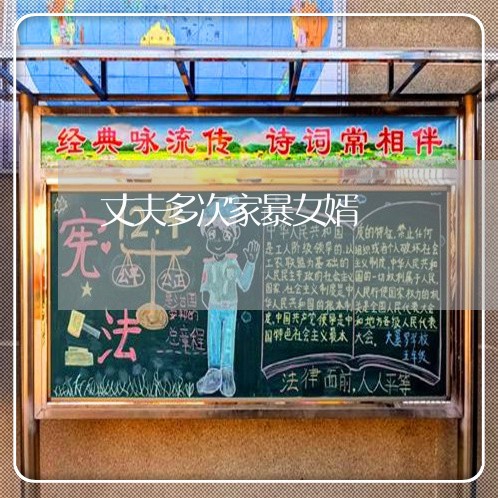 经典咏流传 诗词常相伴
丈夫多次家暴女婿
12.4
宪
法
公平
公正
法律面前,人人平等
中华人民共和国
是工人阶级领导的,以
工农联盟为基础的
人民民主专政的社会主义
国家,社会主义制度是中
华人民共和国的根本制
度,中国共产党领导是中
国特色社会主义最本
质的特征,禁止任何
组织或者个人破坏社会
主义制度,中华人民共和
国的一切权利属于人民,
人民行使国家权力的机
关是全国人民代表大会
和地方各级人民代表
大会.
五年级